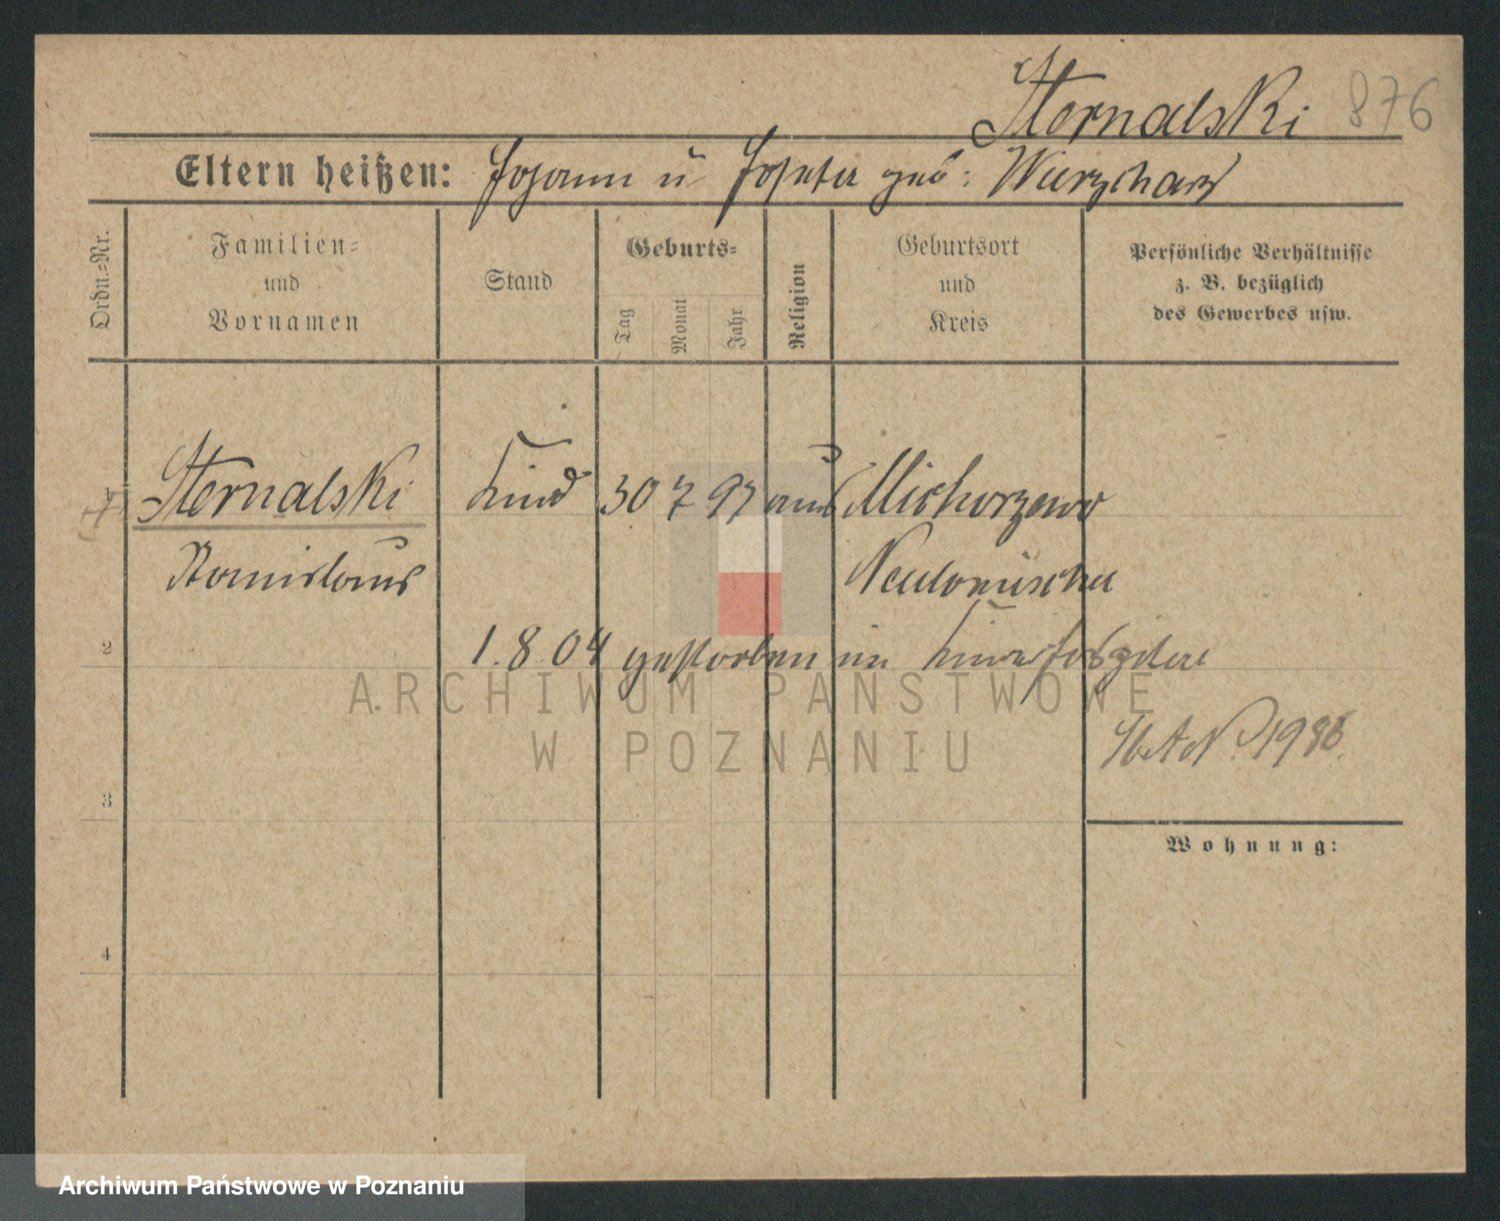 Sternalski 876
Eltern heißen: Johann u Josefa geb: Wierzchacz
Ordn.=Nr.
Familien=
und
Vornamen
Stand
Geburts=
Tag
Monat
Jahr
Religion
Geburtsort
und
Kreis
Persönliche Verhältnisse
z. B. bezüglich
des Gewerbes usw.
1 Sternalski Kind 30 7 97 aus Michorzewo
Stanislaus Neutomischel
2 1.8.04 gestorben im Kinderhospital
StA N. 1986.
3
Wohnung:
4
ARCHIWUM PAŃSTWOWE
W POZNANIU
Archiwum Państwowe w Poznaniu